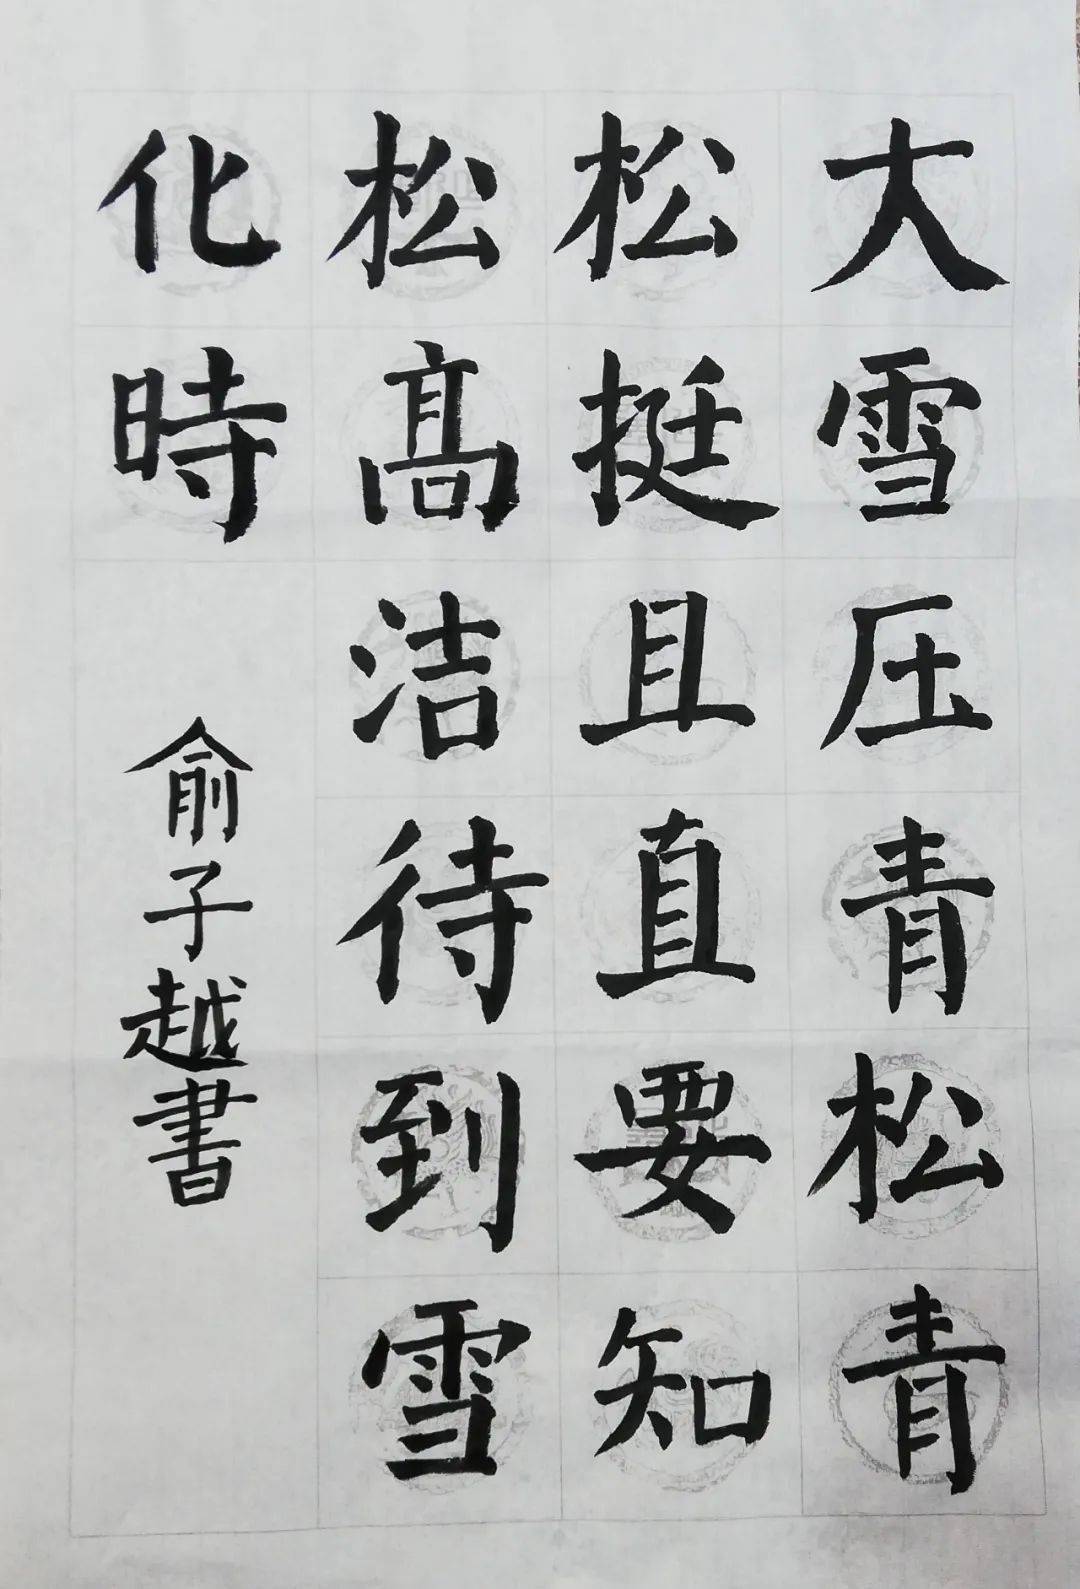 大雪压青松青
松挺且直要知
松高洁待到雪
化時
俞子越書